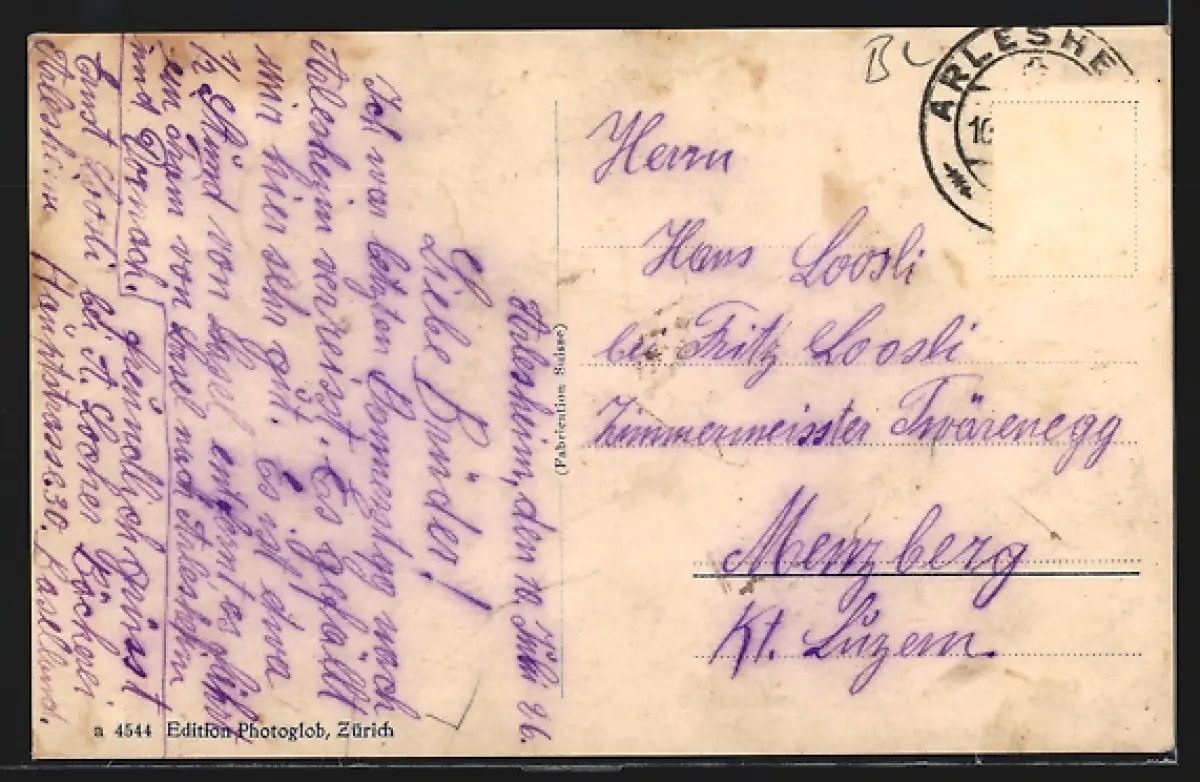 Arlesheim, den 10. Juli 26.
Liebe Brüder!
Ich war letzten Donnerstag nach
Arlesheim verreist. Es gefällt
mir hier sehr gut. Es ist etwa
½ Stund von Basel entfernt es
ein Tram von Basel nach Arlesheim
und Dornach.
freundlich grüsst
Ernst Loosli bei A. Locher Bäckerei
Arlesheim Hauptstrasse 30. Baselland.
BL
ARLESHE
10
Herrn
Hans Loosli
bei Fritz Loosli
Zimmermeisster Twärenegg
Menzberg
Kt. Luzern.
(Fabrication Suisse)
a 4544 Edition Photoglob, Zürich